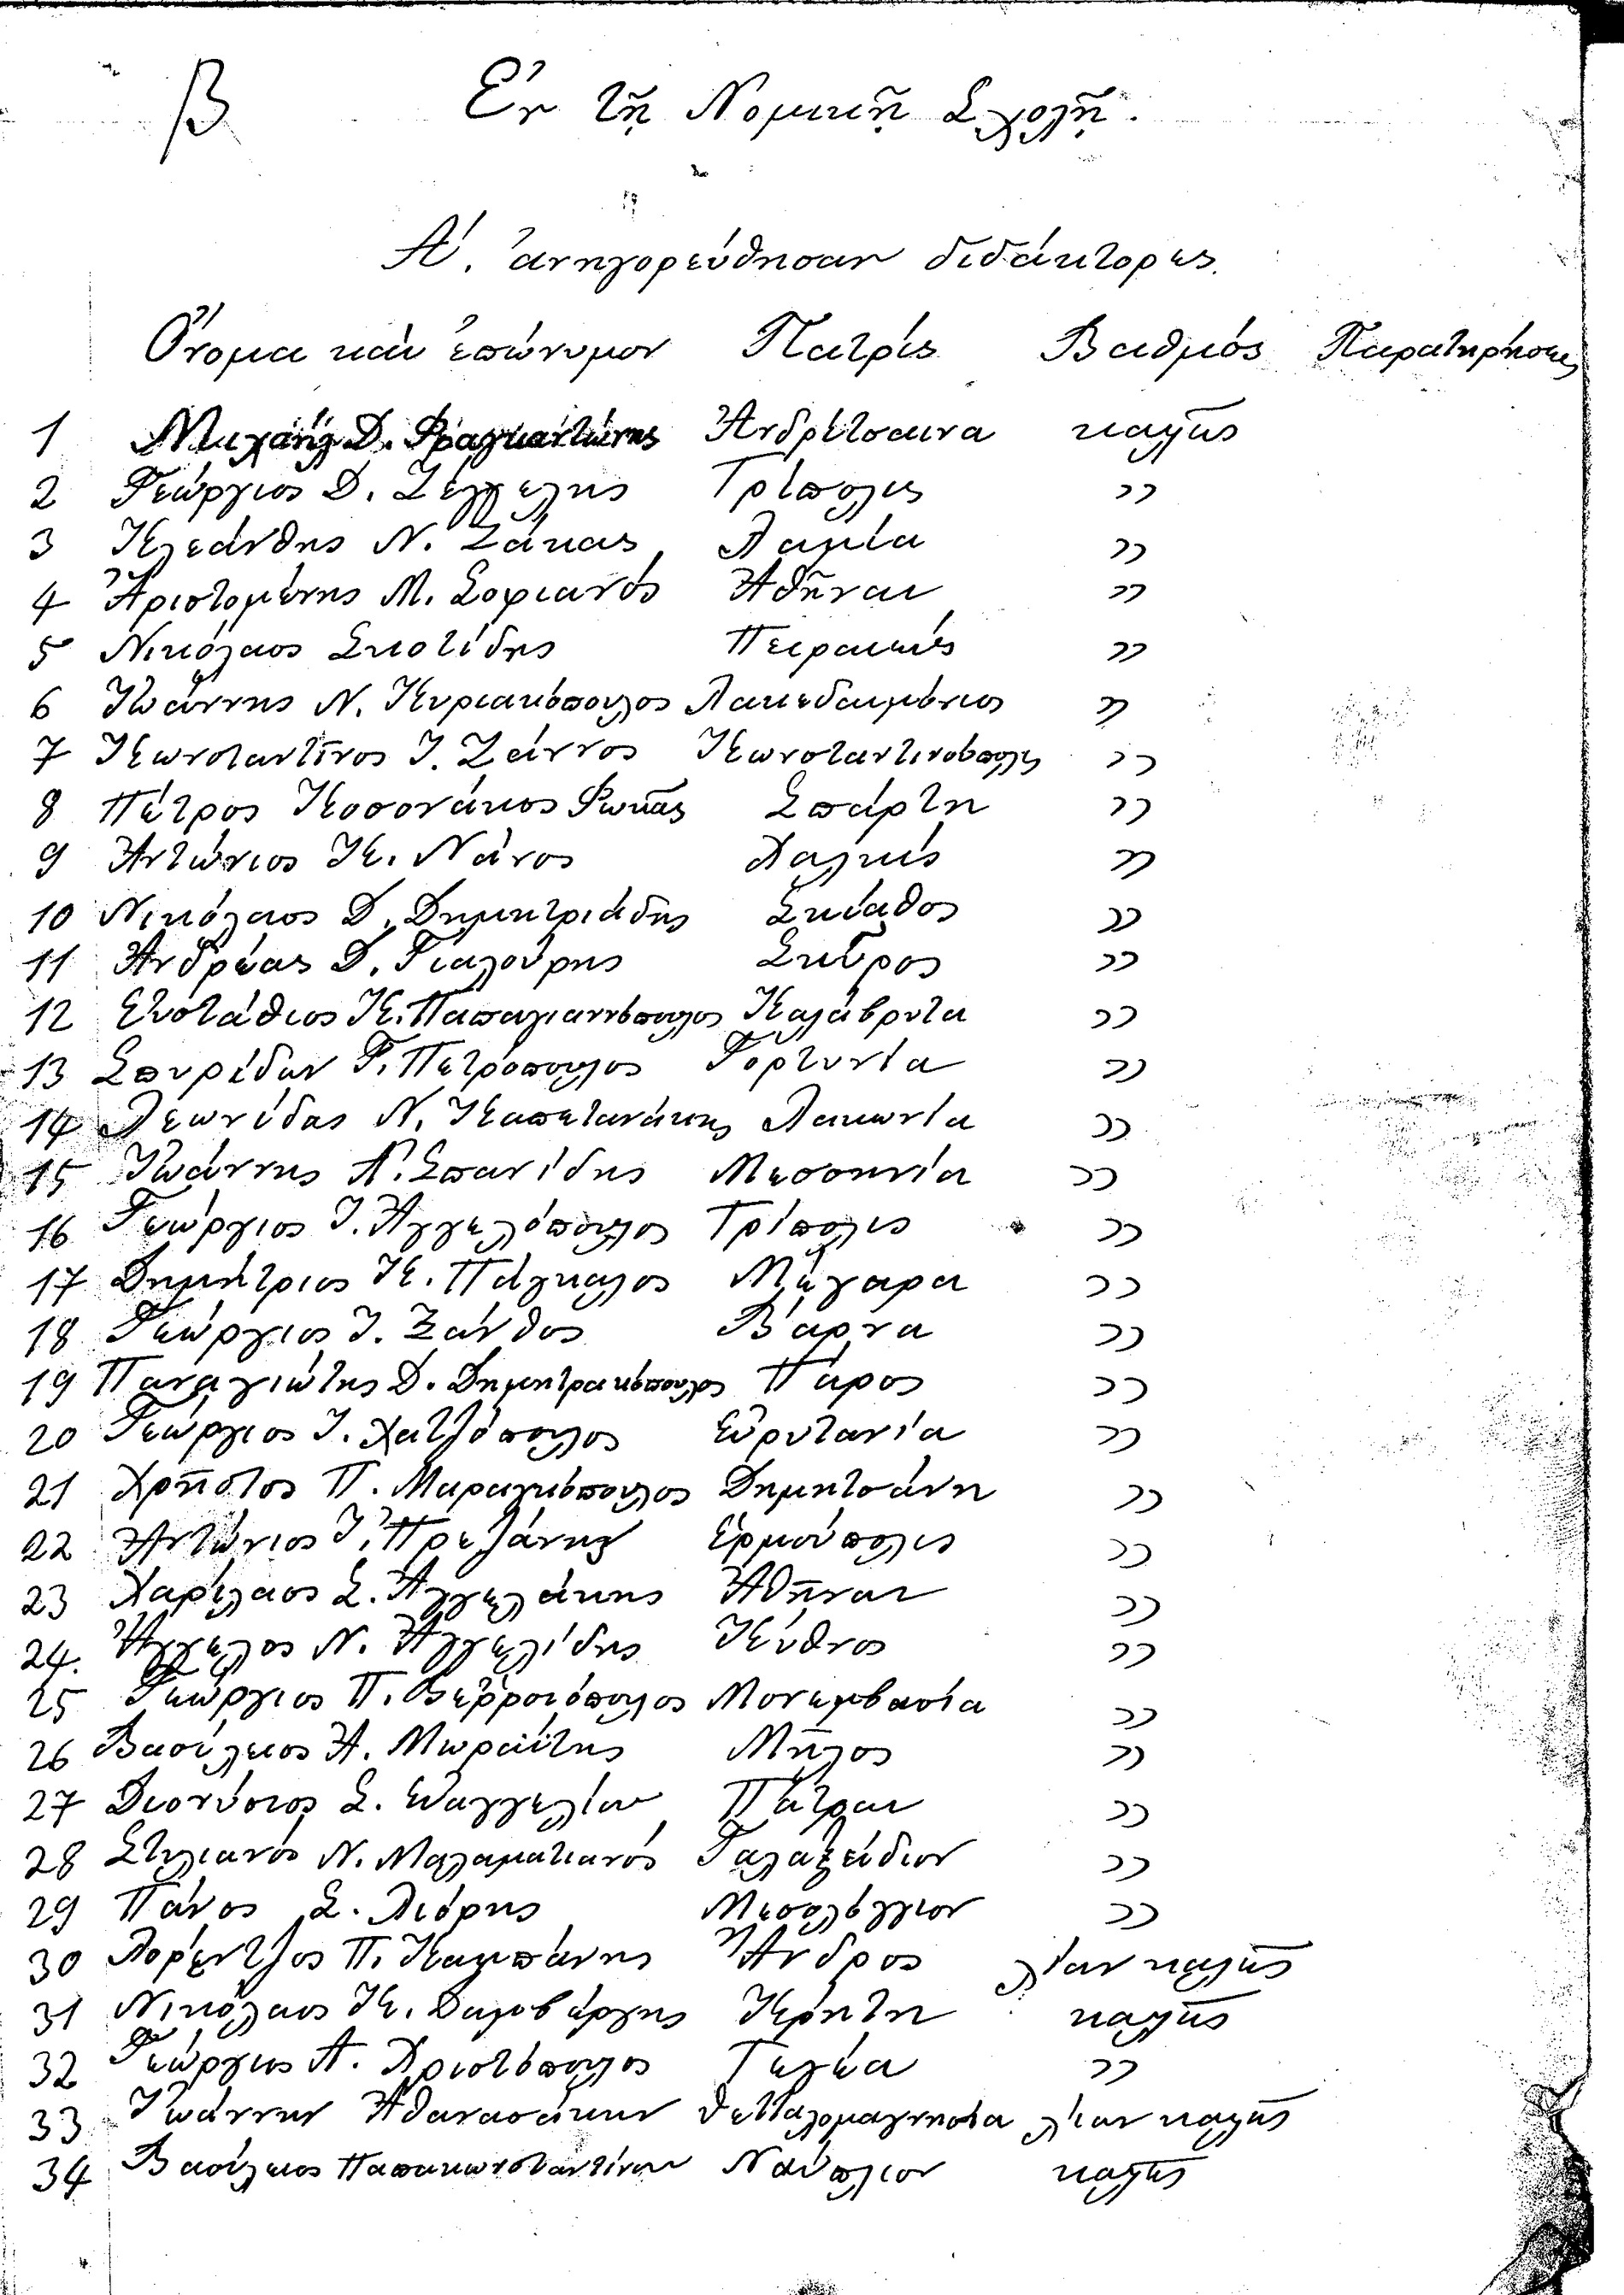 β
Ἐν τῇ Νομικῇ Σχολῇ.
Α΄. ἀνηγορεύθησαν διδάκτορες.
Ὄνομα καὶ ἐπώνυμον Πατρίς Βαθμός Παρατηρήσεις
1 Μιχαήλ Δ. Φραγκαντώνης Ἀνδρίτσαινα καλῶς
2 Γεώργιος Δ. Ζέγγελης Τρίπολις "
3 Κλεάνθης Ν. Ζάκας Λαμία "
4 Ἀριστομένης Μ. Σοφιανός Ἀθῆναι "
5 Νικόλαος Σκοτίδης Πειραιεύς "
6 Ἰωάννης Ν. Κυριακόπουλος Λακεδαιμόνιος "
7 Κωνσταντῖνος Ι. Ζάννος Κωνσταντινούπολις "
8 Πέτρος Κοσονάκος Φωκᾶς Σπάρτη "
9 Ἀντώνιος Κ. Νάνος Χαλκίς "
10 Νικόλαος Δ. Δημητριάδης Σκίαθος "
11 Ἀνδρέας Δ. Γιαλούρης Σκῦρος "
12 Εὐστάθιος Κ. Παπαγιαννόπουλος Καλάβρυτα "
13 Σπυρίδων Γ. Πετρόπουλος Γορτυνία "
14 Λεωνίδας Ν. Καπετανάκης Λακωνία "
15 Ἰωάννης Α. Σπανίδης Μεσσηνία "
16 Γεώργιος Ι. Ἀγγελόπουλος Τρίπολις "
17 Δημήτριος Κ. Πάγκαλος Μέγαρα "
18 Γεώργιος Ι. Ξάνθος Βάρνα "
19 Παναγιώτης Δ. Δημητρακόπουλος Πάρος "
20 Γεώργιος Ι. Χατζόπουλος Εὐρυτανία "
21 Χρῆστος Π. Μαραγκόπουλος Δημητσάνη "
22 Ἀντώνιος Ι. Πρεζάνης Ἑρμούπολις "
23 Χαρίλαος Σ. Ἀγγελάκης Ἀθῆναι "
24. Ἄγγελος Ν. Ἀγγελίδης Κύθνος "
25 Γεώργιος Π. Μονεμβασία "
26 Βασίλειος Α. Μωραΐτης Μῆλος "
27 Διονύσιος Σ. Εὐαγγελίου Πάτραι "
28 Στυλιανός Ν. Μαλαματιανός Γαλαξείδιον "
29 Πάνος Σ. Λιόρης Μεσολόγγιον "
30 Λορέντζος Π. Καμπάνης Ἄνδρος λίαν καλῶς
31 Νικόλαος Κ. Δαλοβέργης Κρήτη καλῶς
32 Γεώργιος Α. Χριστόπουλος Τεγέα "
33 Ἰωάννην Ἀθανασάκην Θετταλομαγνησία λίαν καλῶς
34 Βασίλειος Παπακωνσταντίνου Ναύπλιον καλῶς